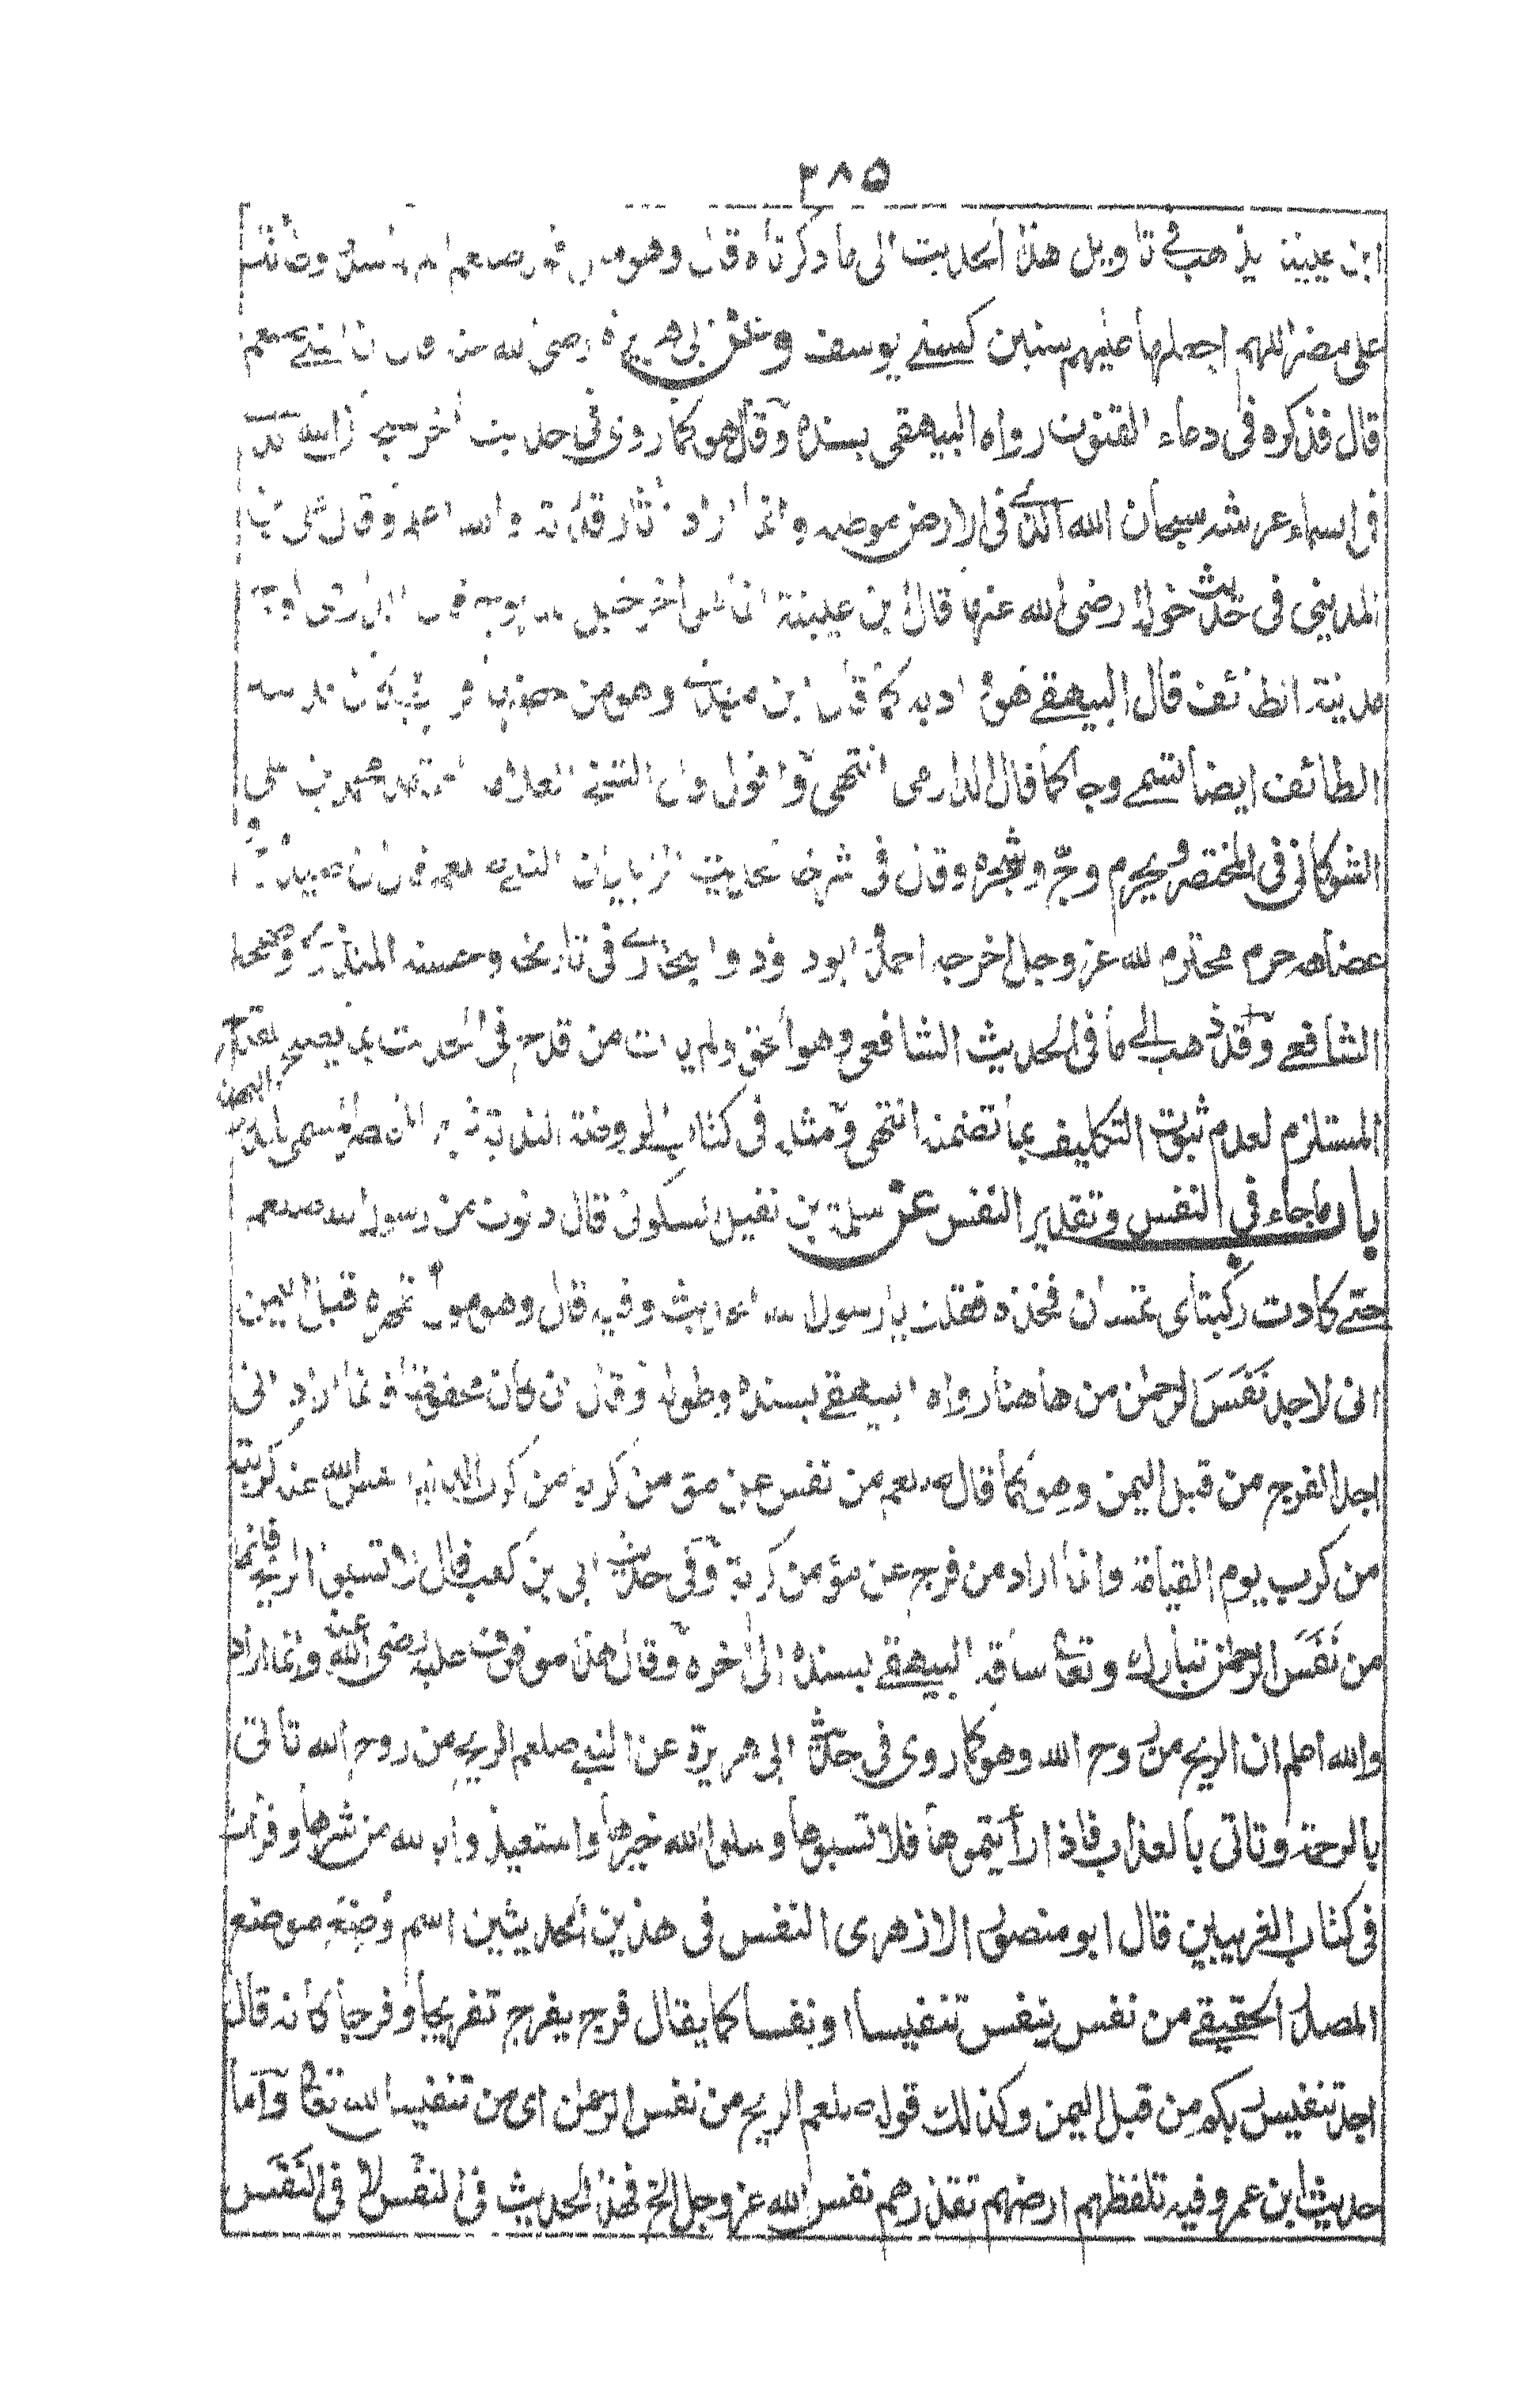 ٢٨٥
ابن عيينة يذهب في تاويل هذا الحديث الى ما ذكرناه قال وهو
على مضر اللهم اجعلها عليهم سنين كسني يوسف وعن ابي هريرة رضي الله عنه قال ان النبي صلعم
قال فذكره في دعاء القنوت رواه البيهقي بسنده وقال هو كما روى في حديث اخر سبحان الله الذي
في السماء عرشه سبحان الله الذي في الارض موضعه وانما اراد اثار قدرته والله اعلم وقال علي بن
المديني في حديث خولة رضي الله عنها قال ابن عيينة انما هو اخر خيل الله بوج قال
مدينة الطائف قال البيهقي هو ادبه كما قال ابن مهدي وهو من حصونها قريب كان
الطائف ايضا تسمى وجا كما قال الدارمي انتهى واقول قال الشيخ العلامة محمد بن علي
الشوكاني في المختصر ويحرم وجّ وشجره وقال في شرحه لحديث الزبير ان النبي صلعم قال ان صيد وج و
عضاهه حرم محترم لله عز وجل اخرجه احمد وابو داؤد والبخاري في تاريخه وحسنه المنذري وصححه
الشافعي وقد ذهب الى ما في الحديث الشافعي وهو الحق ولم يات من قدح في الحديث بما يصلح للقدح
المستلزم لعدم ثبوت التكليف بما تضمنه انتهى ومثله في كتابه الروضة الندية
باب ما جاء في النفس وتقدير النفس عن سلمة بن نفيل السكوني قال دنوت من رسول الله صلعم
حتى كادت ركبتاي تمسان فخذه فقلت يا رسول الله الحديث وفيه قال وهو مول ظهره قبل اليمن
اني لاجد نَفَسَ الرحمن من هاهنا رواه البيهقي بسنده وطوله وقال ان كان محفوظا فانما اراد اني
اجد الفرج من قبل اليمن وهو كما قال صلعم من نفس عن مؤمن كربة من كرب الدنيا نفس الله عنه كربة
من كرب يوم القيامة وانما اراد من فرج عن مؤمن كربة وفي حديث ابي بن كعب قال لا تسبوا الريح فانها
من نَفَسِ الرحمن تبارك وتعالى ساقه البيهقي بسنده الى اخره وقال هذا موقوف عليه رضي الله عنه وانما اراد
والله اعلم ان الريح من روح الله وهو كما روي في حديث ابي هريرة عن النبي صلعم الريح من روح الله تاتي
بالرحمة وتاتي بالعذاب فاذا رأيتموها فلا تسبوها وسلوا الله خيرها واستعيذوا بالله من شرها وقرأت
في كتاب الغريبين قال ابو منصور الازهري النفس في هذين الحديثين اسم وُضِعَ موضع
المصدر الحقيقي من نفس ينفس تنفيسا ونفسا كما يقال فرج يفرج تفريجا وفرجا كانه قال
اجد تنفيس ربكم من قبل اليمن وكذلك قوله صلعم الريح من نفس الرحمن اي من تنفيس الله تعالى واما
حديث ابن عمر وفيه تلفظهم ارضهم تقذرهم نفس الله عز وجل الخ فهذا الحديث في النفْس لا في النَفَس